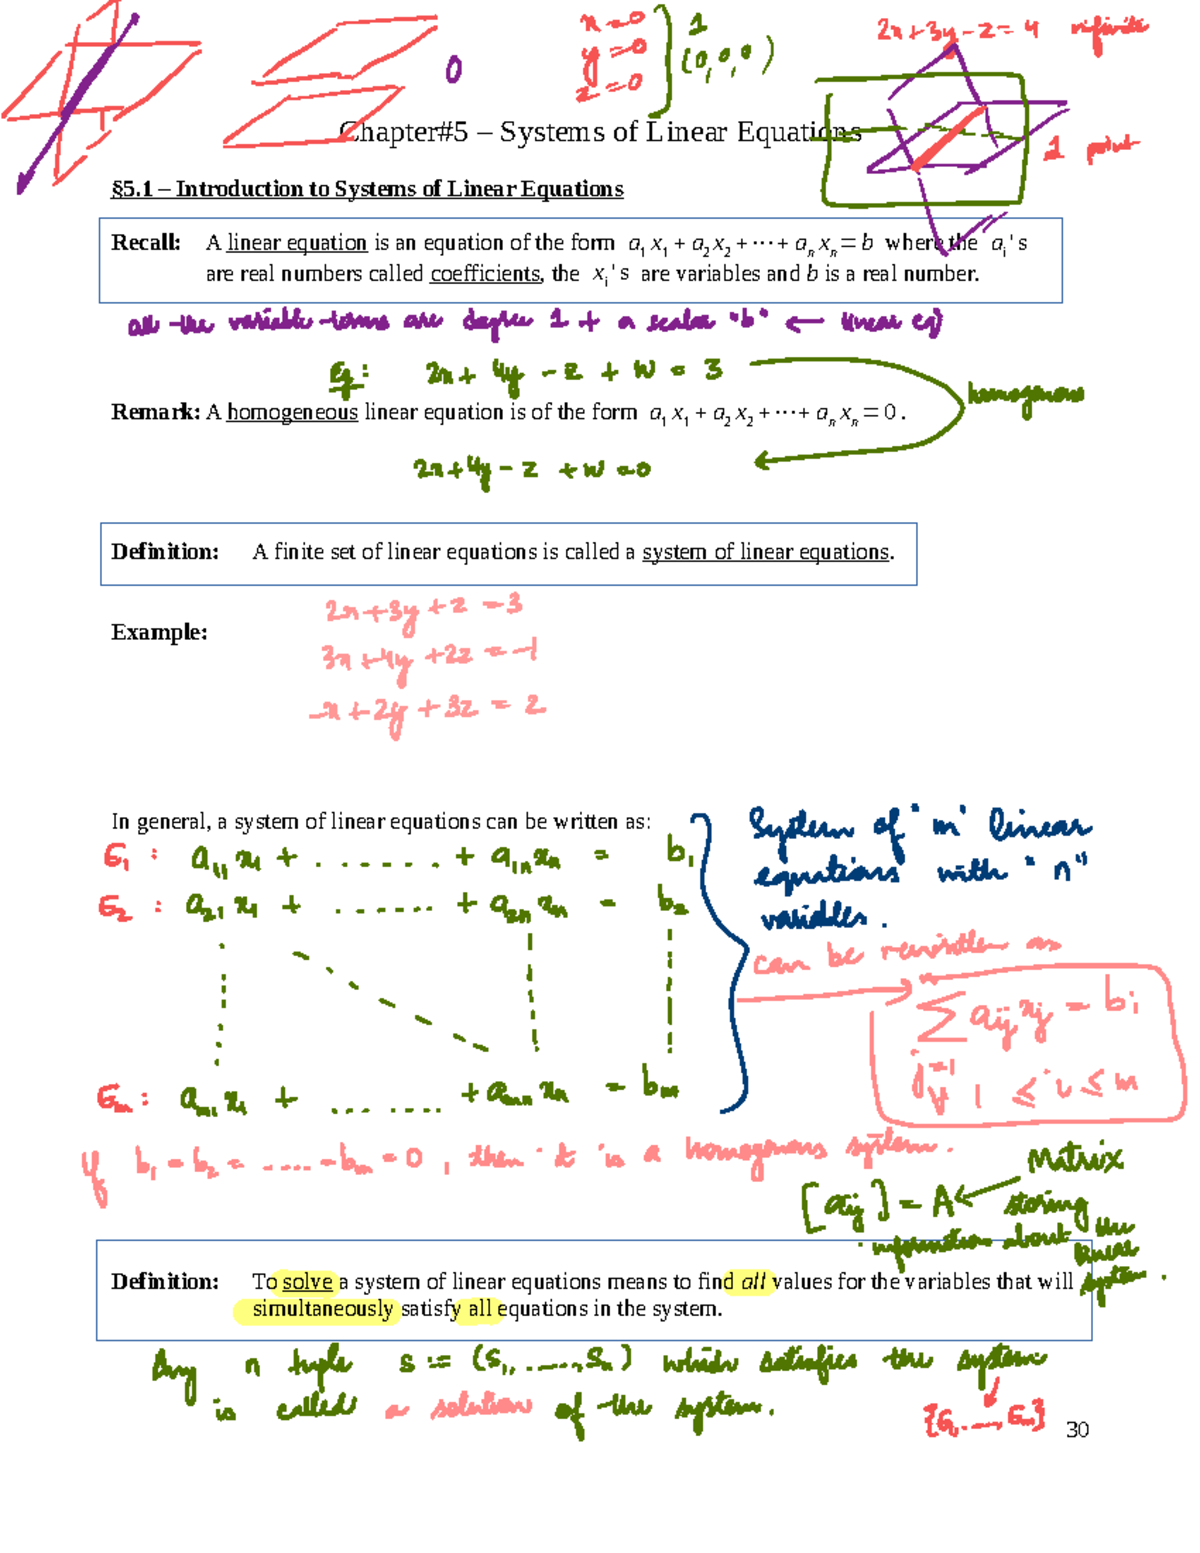 x = 0
y = 0
z = 0
1
(0, 0, 0)
0
2x + 3y - z = 4 infinite
1 point
Chapter#5 – Systems of Linear Equations
§5.1 – Introduction to Systems of Linear Equations
Recall: A linear equation is an equation of the form a₁x₁ + a₂x₂ + ⋯ + aₙxₙ = b where the aᵢ's
are real numbers called coefficients, the xᵢ's are variables and b is a real number.
all the variable terms are degree 1 + a scalar "b" ← linear eq)
Eg: 2x + 4y - z + w = 3
homogenous
Remark: A homogeneous linear equation is of the form a₁x₁ + a₂x₂ + ⋯ + aₙxₙ = 0 .
2x + 4y - z + w = 0
Definition: A finite set of linear equations is called a system of linear equations.
Example:
2x + 3y + z = 3
3x + 4y + 2z = -1
-x + 2y + 3z = 2
In general, a system of linear equations can be written as:
E₁ : a₁₁x₁ + ....... + a₁ₙxₙ = b₁
E₂ : a₂₁x₁ + ....... + a₂ₙxₙ = b₂
Eₘ : aₘ₁x₁ + ....... + aₘₙxₙ = bₘ
System of "m" linear
equations with "n"
variables.
can be rewritten as
n
∑ aᵢⱼxⱼ = bᵢ
j=1
∀ 1 ≤ i ≤ m
If b₁ = b₂ = ..... = bₘ = 0 , then it is a homogenous system.
[aᵢⱼ] = A ← Matrix
storing
information about the
linear
system.
Definition: To solve a system of linear equations means to find all values for the variables that will
simultaneously satisfy all equations in the system.
Any n tuple s := (s₁, ....., sₙ) which satisfies the system
is called a solution of the system.
{E₁, ..., Eₘ}
30